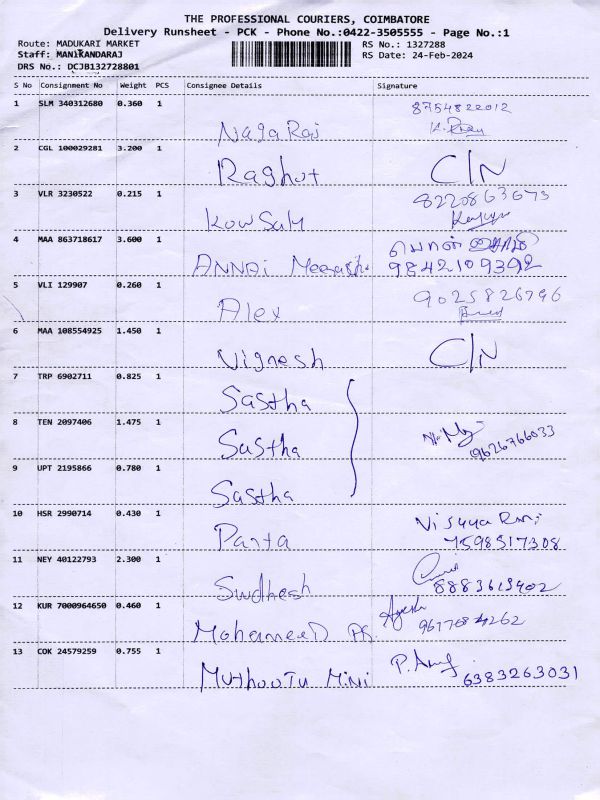 THE PROFESSIONAL COURIERS, COIMBATORE
Delivery Runsheet - PCK - Phone No.:0422-3505555 - Page No.:1
Route: MADUKARI MARKET
RS No.: 1327288
Staff: MANIKANDARAJ
RS Date: 24-Feb-2024
DRS No.: DCJB132728801
S No Consignment No Weight PCS Consignee Details Signature
1 SLM 340312680 0.360 1 8754822012
NagaRaj
2 CGL 100029281 3.200 1
Raghut C/N
3 VLR 3230522 0.215 1 8220863673
KowSaly
4 MAA 863718617 3.600 1
ANNAI 9842109392
5 VLI 129907 0.260 1 9025826796
Alex
6 MAA 108554925 1.450 1 C/N
Vignesh
7 TRP 6902711 0.825 1
Sastha
8 TEN 2097406 1.475 1
Sastha 9626766033
9 UPT 2195866 0.780 1
Sastha
10 HSR 2990714 0.430 1
Panta 7598517308
11 NEY 40122793 2.300 1
Swdhesh 8883613402
12 KUR 7000964650 0.460 1
Mohameed
13 COK 24579259 0.755 1
Muthootu Mini 6383263031